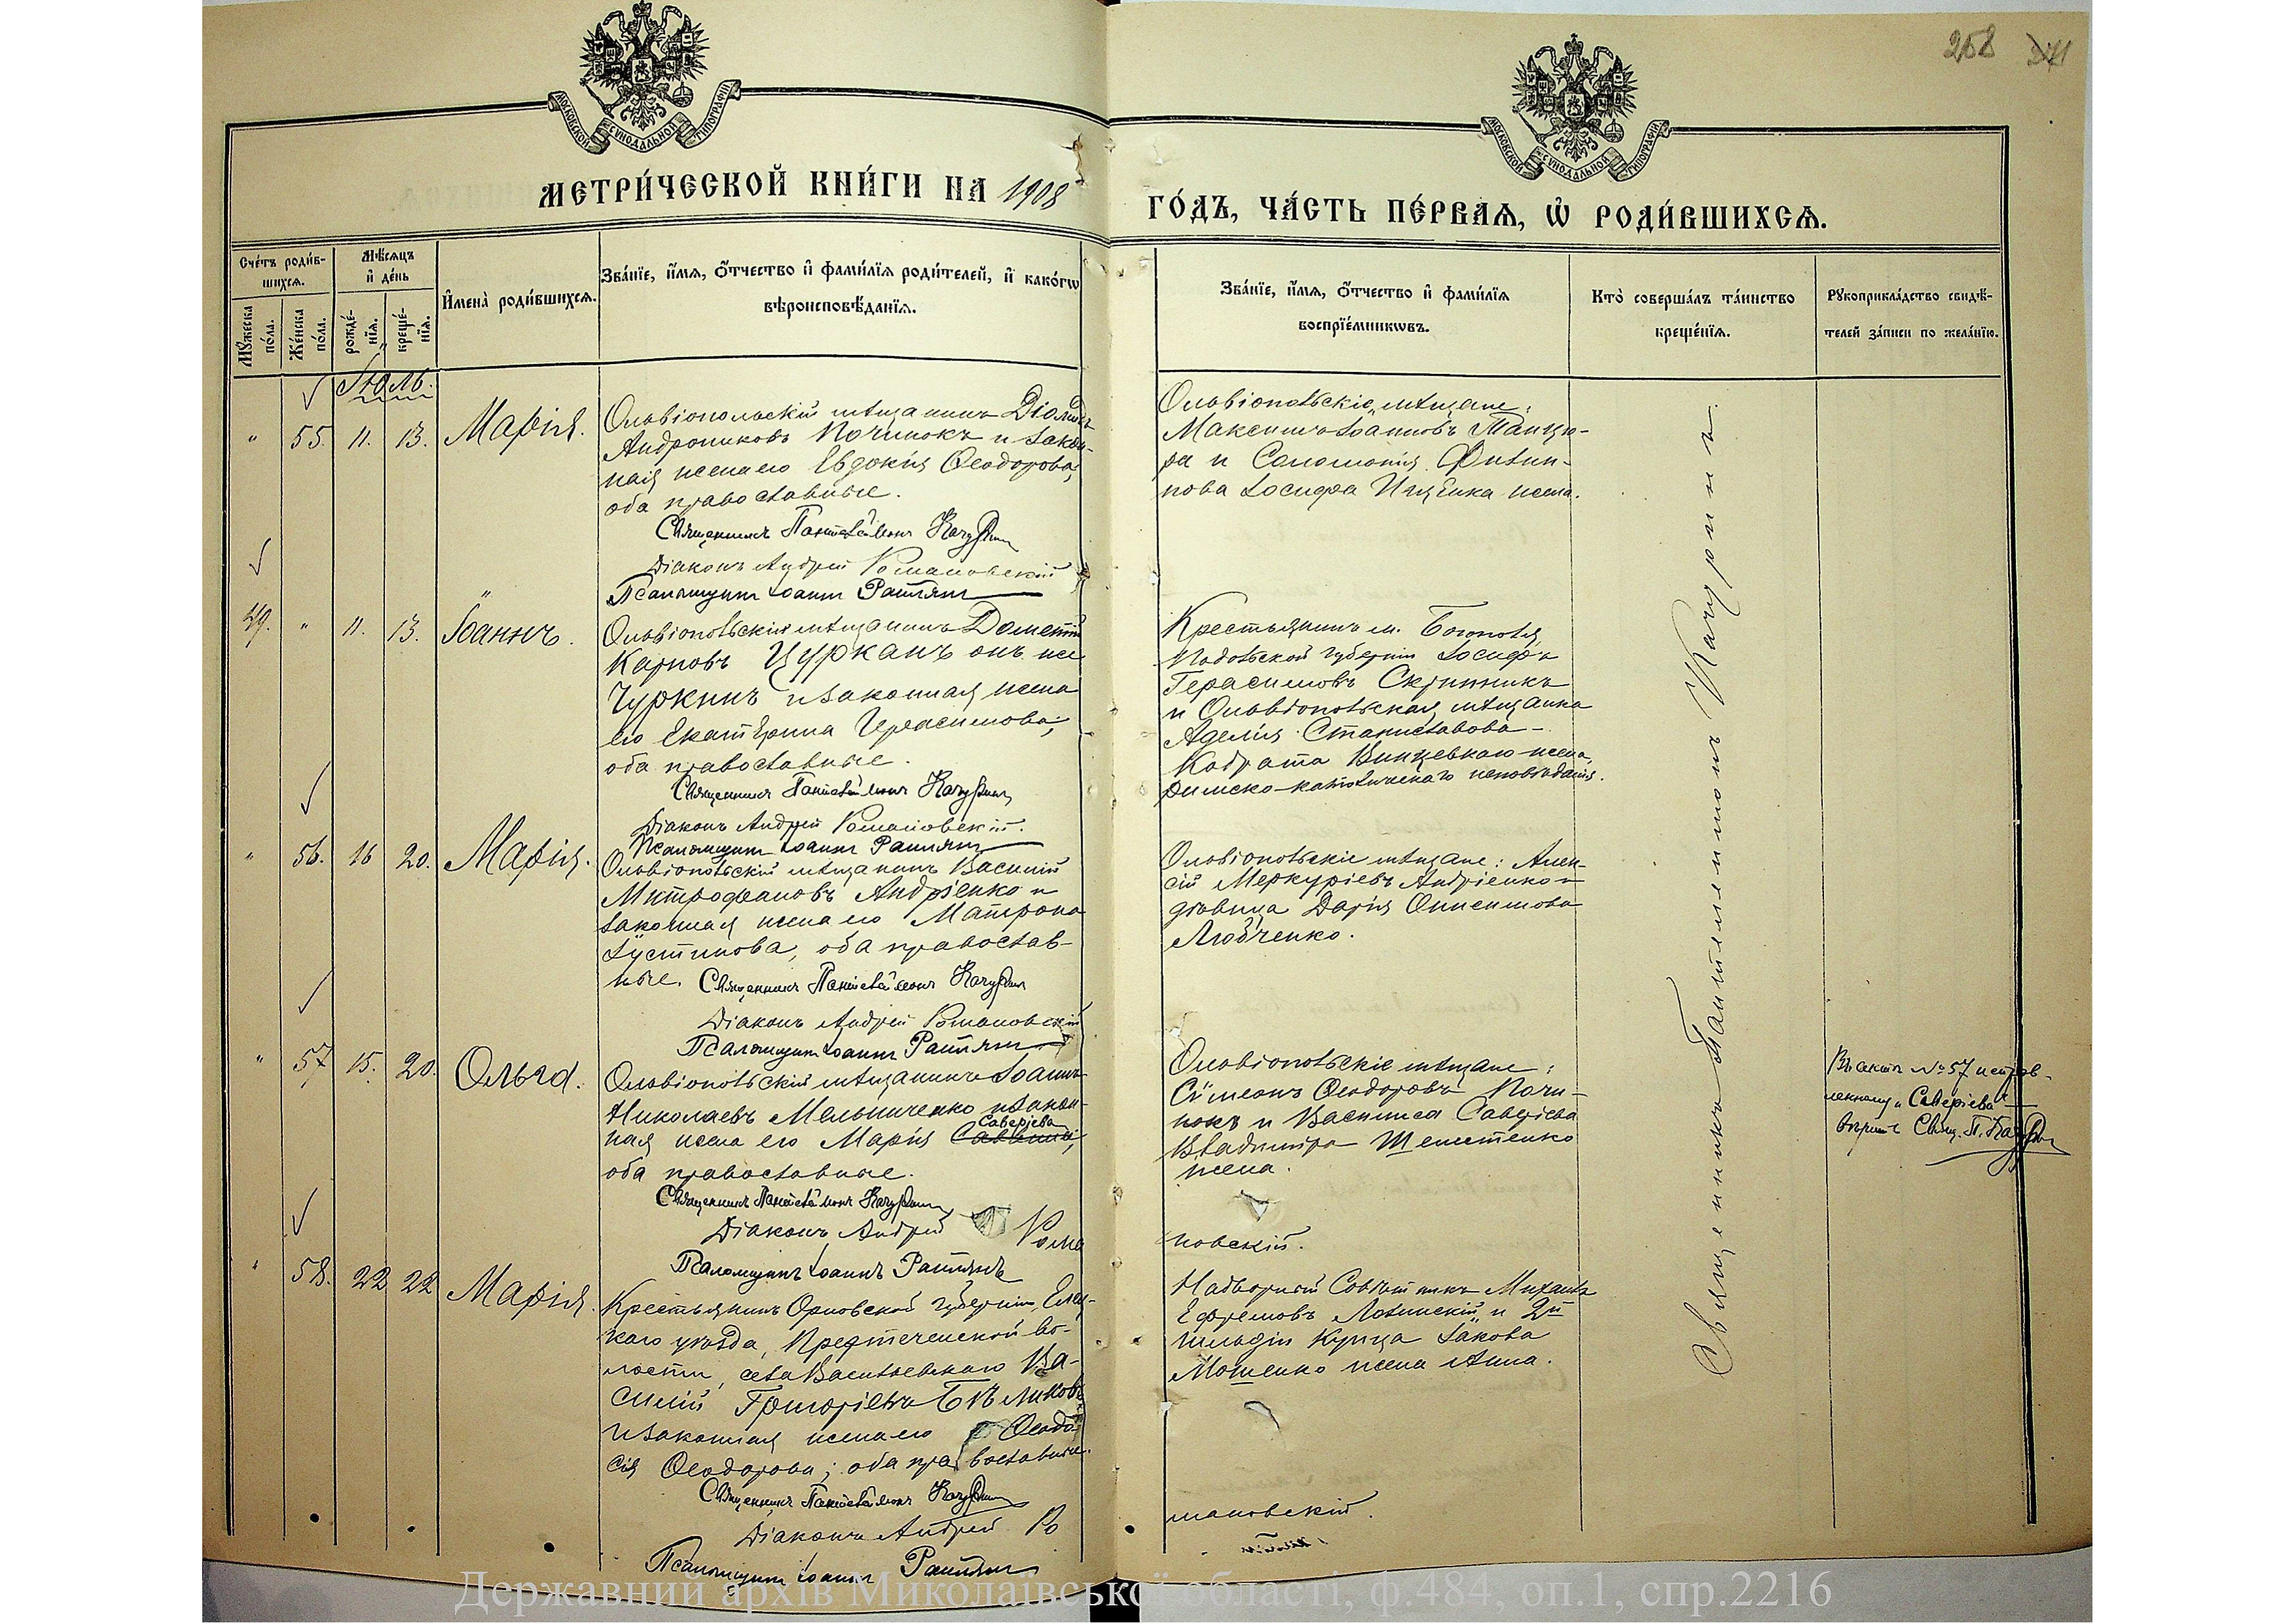 258
МОСКОВСКОЙ СѴНОДАЛЬНОЙ ТИПОГРАФІИ
МОСКОВСКОЙ СѴНОДАЛЬНОЙ ТИПОГРАФІИ
МЕТРИ́ЧЕСКОЙ КНИ́ГИ НА 1908
ГО́ДЪ, ЧА́СТЬ ПЕ́РВАѦ, Ѡ РОДИ́ВШИХСѦ.
Счетъ роди́вшихсѧ.
Му́жеска по́ла.
Же́нска по́ла.
Мѣ́сѧцъ и де́нь
рожде́нїѧ.
креще́нїѧ.
И҆мена̀ роди́вшихсѧ.
Зва́нїе, и҆́мѧ, ѻ҆́тчество и҆ фами́лїѧ роди́телей, и҆ како́гѡ
вѣроисповѣ́данїѧ.
Зва́нїе, и҆́мѧ, ѻ҆́тчество и҆ фами́лїѧ
воспрїе́мникѡвъ.
Кто̀ соверша́лъ та́инство
креще́нїѧ.
Рꙋкоприкла́дство свидѣ́-
телей за́писи по жела́нїю.
Іюль.
" 55. 11. 13. Марія.
Ольвіопольскій мѣщанинъ Діомидъ
Андрониковъ Починокъ и закон-
ная жена его Евдокія Ѳеодорова,
оба православные.
Священникъ Пантелеімонъ Качуринъ
Діаконъ Андрей Романовскій
Псаломщикъ Іоаннъ
Ольвіопольскіе мѣщане:
Максимъ Іоанновъ Танцю-
ра и Соломонія Филип-
пова Іосифа Ищенка жена.
49. " 11. 13. Іоаннъ.
Ольвіопольскій мѣщанинъ Дометій
Карповъ Цурканъ онъ же
Чуркинъ и законная жена
его Екатерина Герасимова;
оба православные.
Священникъ Пантелеімонъ Качуринъ
Діаконъ Андрей Романовскій.
Псаломщикъ Іоаннъ
Крестьянинъ м. Богополя,
Подольской губерніи Іосифъ
Герасимовъ Скрипникъ
и Ольвіопольская мѣщанка
Аделія Станиславова
Кодрата жена,
римско-католическаго исповѣданія.
" 56. 16 20. Марія.
Ольвіопольскій мѣщанинъ Василій
Митрофановъ Андріенко и
законная жена его Матрона
Іустинова, оба православ-
ные. Священникъ Пантелеімонъ Качуринъ
Діаконъ Андрей Романовскій
Псаломщикъ Іоаннъ
Ольвіопольскіе мѣщане: Алек-
сій Меркуріевъ Андріенко и
дѣвица Дарія Онисимова
Любченко.
" 57 15. 20. Ольга.
Ольвіопольскій мѣщанинъ Іоаннъ
Николаевъ Мельниченко и закон-
Саверіева
ная жена его Марія
оба православные.
Священникъ Пантелеімонъ Качуринъ
Діаконъ Андрей Рома
новскій.
Псаломщикъ Іоаннъ
Ольвіопольскіе мѣщане:
Сѵмеонъ Ѳеодоровъ Почи-
нокъ и Василиса Саверіева
Владиміра Шелестенко
жена.
Въ актѣ № 57 исправ-
ленному „Саверіева"
вѣрить Свящ. П. Качуринъ
" 58. 22 22 Марія.
Крестьянинъ Орловской губерніи, Елец-
каго уѣзда, Предтеченской во-
лости, села Васильевскаго Ва-
силій Григорьевъ Бѣликовъ
и законная жена его Ѳеодо-
сія Ѳеодорова; оба православные.
Священникъ Пантелеімонъ Качуринъ
Діаконъ Андрей Ро
мановскій.
Псаломщикъ Іоаннъ
Надворный Совѣтникъ Михаилъ
Ефремовъ Лозинскій и 2й
гильдіи купца Іакова
Мошенко жена Анна.
Священникъ Пантелеимонъ Качуринъ.
Державний архів Миколаївської області, ф.484, оп.1, спр.2216